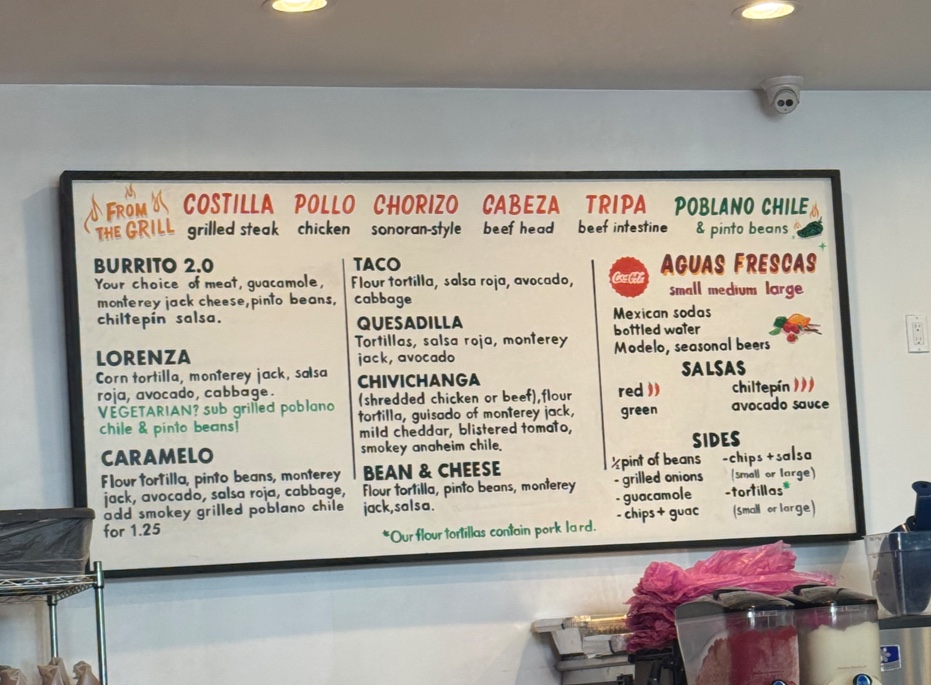 FROM THE GRILL
COSTILLA
grilled steak
POLLO
chicken
CHORIZO
sonoran-style
CABEZA
beef head
TRIPA
beef intestine
POBLANO CHILE
& pinto beans
BURRITO 2.0
Your choice of meat, guacamole,
monterey jack cheese, pinto beans,
chiltepín salsa.
LORENZA
Corn tortilla, monterey jack, salsa
roja, avocado, cabbage.
VEGETARIAN? sub grilled poblano
chile & pinto beans!
CARAMELO
Flour tortilla, pinto beans, monterey
jack, avocado, salsa roja, cabbage,
add smokey grilled poblano chile
for 1.25
TACO
Flour tortilla, salsa roja, avocado,
cabbage
QUESADILLA
Tortillas, salsa roja, monterey
jack, avocado
CHIVICHANGA
(shredded chicken or beef), flour
tortilla, guisado of monterey jack,
mild cheddar, blistered tomato,
smokey anaheim chile.
BEAN & CHEESE
Flour tortilla, pinto beans, monterey
jack, salsa.
*Our flour tortillas contain pork lard.
Coca-Cola
AGUAS FRESCAS
small medium large
Mexican sodas
bottled water
Modelo, seasonal beers
SALSAS
red
green
chiltepín
avocado sauce
SIDES
½ pint of beans
- grilled onions
- guacamole
- chips + guac
- chips + salsa
(small or large)
- tortillas*
(small or large)